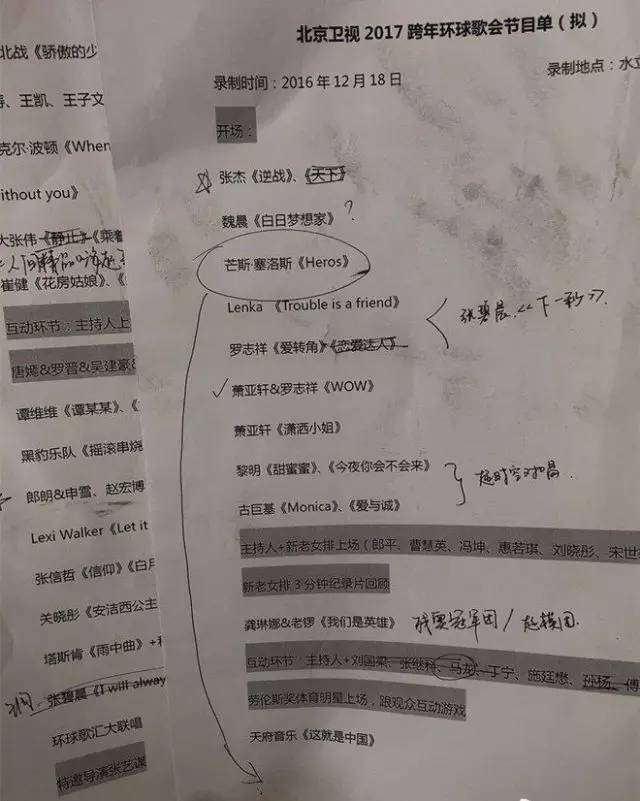 北京卫视 2017 跨年环球歌会节目单（拟）
录制时间：2016 年 12 月 18 日
录制地点：水立
开场：
张杰《逆战》、《天下》
魏晨《白日梦想家》？
芒斯·塞洛斯《Heros》
Lenka 《Trouble is a friend》
张碧晨《下一秒》
罗志祥《爱转角》《恋爱达人》
萧亚轩&罗志祥《WOW》
萧亚轩《潇洒小姐》
黎明《甜蜜蜜》、《今夜你会不会来》
古巨基《Monica》、《爱与诚》
主持人+新老女排上场（郎平、曹慧英、冯坤、惠若琪、刘晓彤、宋世
新老女排 3 分钟纪录片回顾
龚琳娜&老锣《我们是英雄》
互动环节：主持人+刘国梁、张继科、马龙、丁宁、施廷懋、孙杨、傅
劳伦斯奖体育明星上场，跟观众互动游戏
天府音乐《这就是中国》
北战《骄傲的少
、王凯、王子文
克尔·波顿《When
ithout you》
大张伟《静止》《乘着
崔健《花房姑娘》、《
互动环节：主持人上
唐嫣&罗晋&吴建豪&
谭维维《谭某某》、《
黑豹乐队《摇滚串烧
郎朗&申雪、赵宏博
Lexi Walker《Let it
张信哲《信仰》《白月
关晓彤《安洁西公主
塔斯肯《雨中曲》+
张碧晨《I will alway
环球歌汇大联唱
特邀导演张艺谋